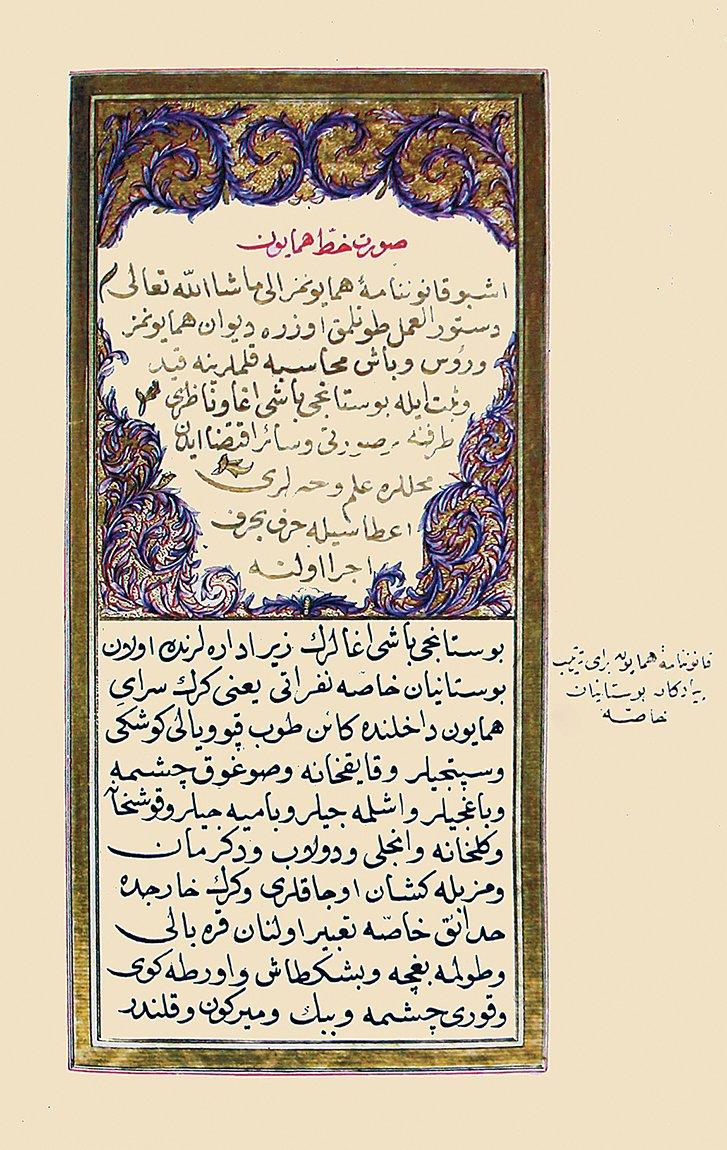 صورت خطّ همایون
اشبو قانوننامهٔ همایونمز الی ماشاالله تعالی
دستور العمل طوتلمق اوزره دیوان همایونمز
ورؤس وباش محاسبه قلملرینه قید
وثبت ایله بوستانجی باشی اغا وناظری
طرفنه بر صورتی وسائر اقتضا ایدن
محللره علم وخبرلری
اعطاسیله حرف بحرف
اجرا اولنه
بوستانجی باشی اغالرك زیر اداره لرنده اولان
بوستانیان خاصه نفراتی یعنی كرك سرای
همایون داخلنده كائن طوب قپو ویالی كوشكی
وسپتجیلر وقایقخانه وصوغوق چشمه
وباغجیلر واشلمه جیلر وبامیه جیلر وقوشخانه
وكلخانه وانجلی ودولاب ودكرمان
ومزبله كشان اوجاقلری وكرك خارجده
حدائق خاصّه تعبیر اولنان قره بالی
وطولمه بغچه وبشكطاش واورطه كوی
وقوری چشمه وببك ومیركون وقلندر
قانوننامهٔ همایون برای ترتیب
بوستانیان
خاصّه